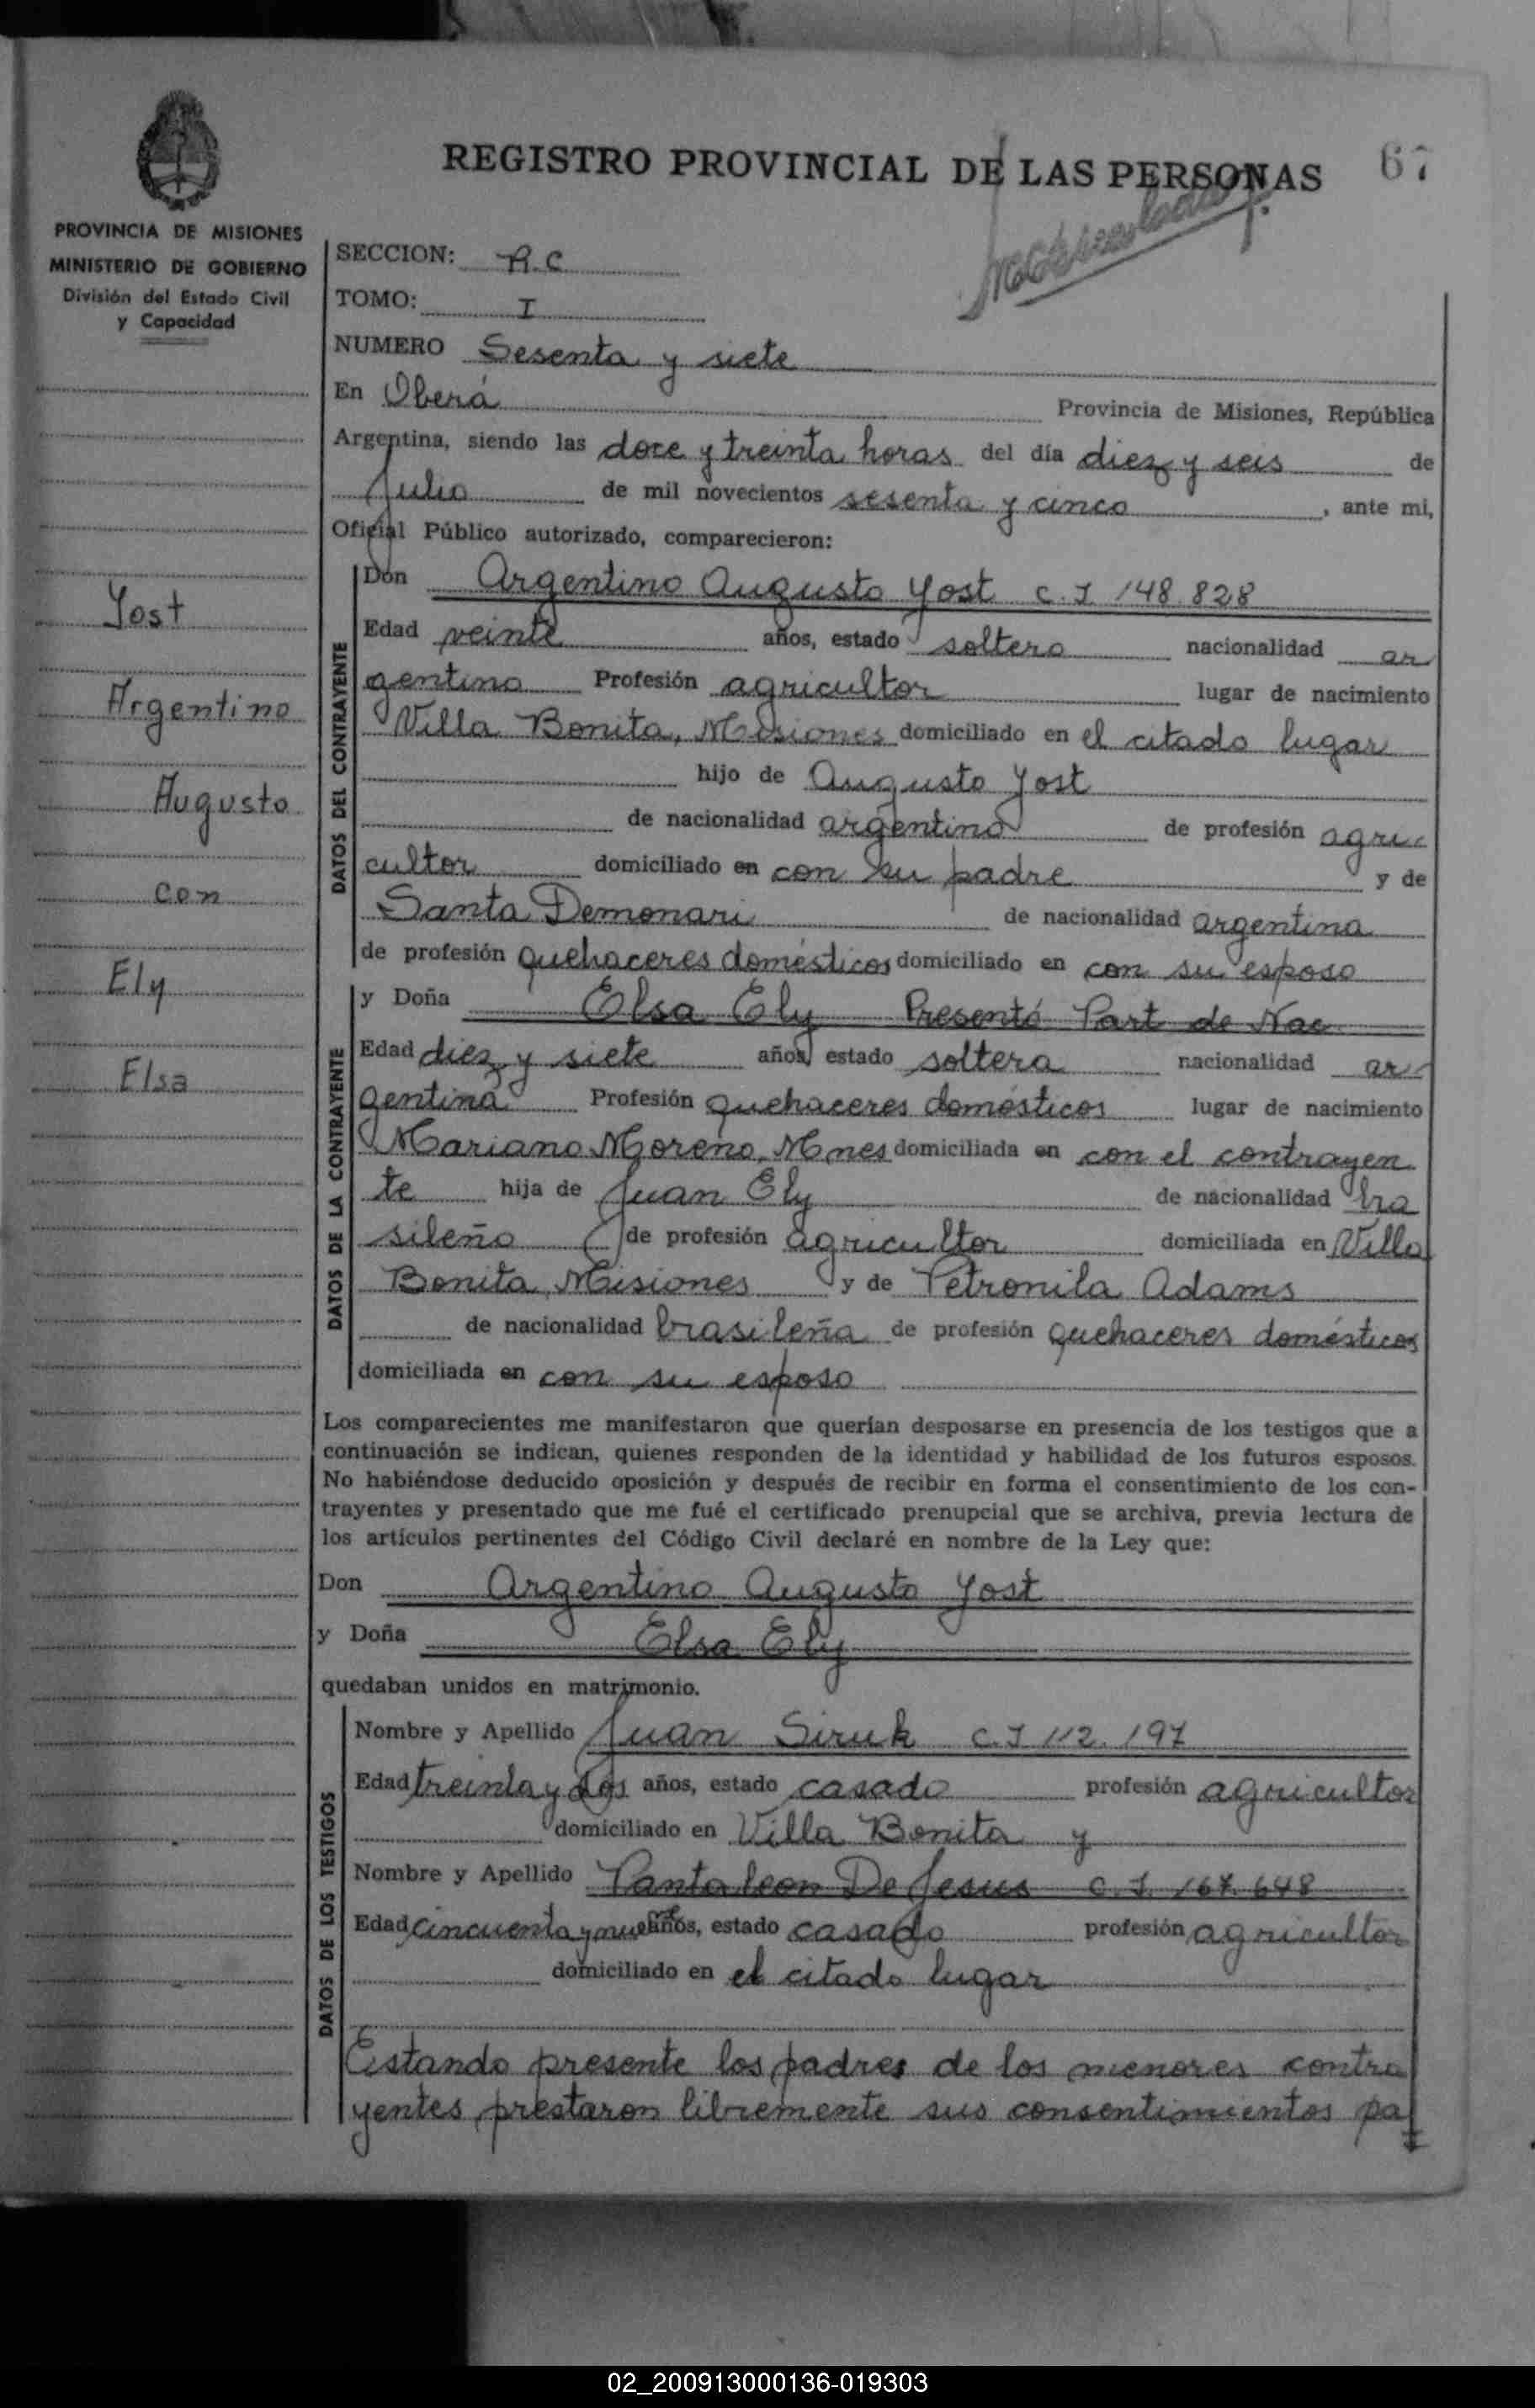 REGISTRO PROVINCIAL DE LAS PERSONAS 67
PROVINCIA DE MISIONES
MINISTERIO DE GOBIERNO
División del Estado Civil
y Capacidad
Yost
Argentino
Augusto
con
Ely
Elsa
SECCION: R.C
TOMO: I
NUMERO Sesenta y siete
En Oberá Provincia de Misiones, República
Argentina, siendo las doce y treinta horas del día diez y seis de
Julio de mil novecientos sesenta y cinco, ante mi,
Oficial Público autorizado, comparecieron:
DATOS DEL CONTRAYENTE
Don Argentino Augusto Yost C.I 148.828
Edad veinte años, estado soltero nacionalidad ar
gentino Profesión agricultor lugar de nacimiento
Villa Bonita, Misiones domiciliado en el citado lugar
hijo de Augusto Yost
de nacionalidad argentino de profesión agri-
cultor domiciliado en con su padre y de
Santa Demonari de nacionalidad argentina
de profesión quehaceres domésticos domiciliado en con su esposo
DATOS DE LA CONTRAYENTE
y Doña Elsa Ely Presentó Part de Nac
Edad diez y siete años, estado soltera nacionalidad ar-
gentina Profesión quehaceres domésticos lugar de nacimiento
Mariano Moreno, Mnes domiciliada en con el contrayen
te hija de Juan Ely de nacionalidad bra
sileño de profesión agricultor domiciliada en Villa
Bonita, Misiones y de Petronila Adams
de nacionalidad brasileña de profesión quehaceres domésticos
domiciliada en con su esposo
Los comparecientes me manifestaron que querían desposarse en presencia de los testigos que a
continuación se indican, quienes responden de la identidad y habilidad de los futuros esposos.
No habiéndose deducido oposición y después de recibir en forma el consentimiento de los con-
trayentes y presentado que me fué el certificado prenupcial que se archiva, previa lectura de
los artículos pertinentes del Código Civil declaré en nombre de la Ley que:
Don Argentino Augusto Yost
y Doña Elsa Ely
quedaban unidos en matrimonio.
DATOS DE LOS TESTIGOS
Nombre y Apellido Juan Siruk C.I 112.197
Edad treinta y dos años, estado casado profesión agricultor
domiciliado en Villa Bonita y
Nombre y Apellido Pantaleon De Jesus C.I. 167.648
Edad cincuenta y nueve años, estado casado profesión agricultor
domiciliado en el citado lugar
Estando presente los padres de los menores contra
yentes prestaron libremente sus consentimientos pa
02_200913000136-019303